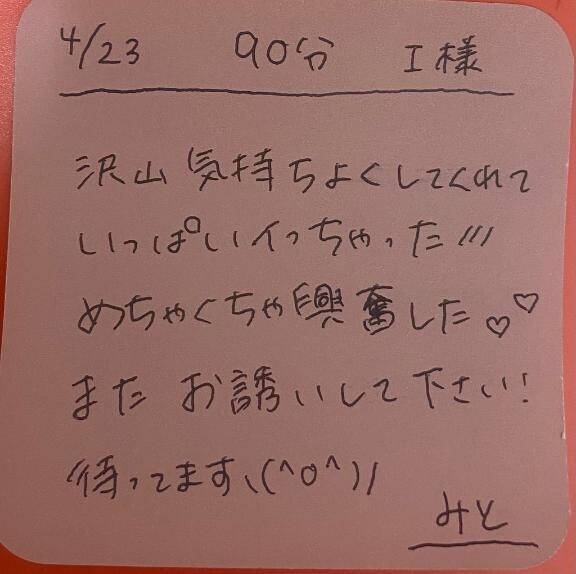 4/23 90分 I様
沢山気持ちよくしてくれて
いっぱいイっちゃった///
めちゃくちゃ興奮した♡♡
また お誘いして下さい!
待ってます、(^o^)//
みと